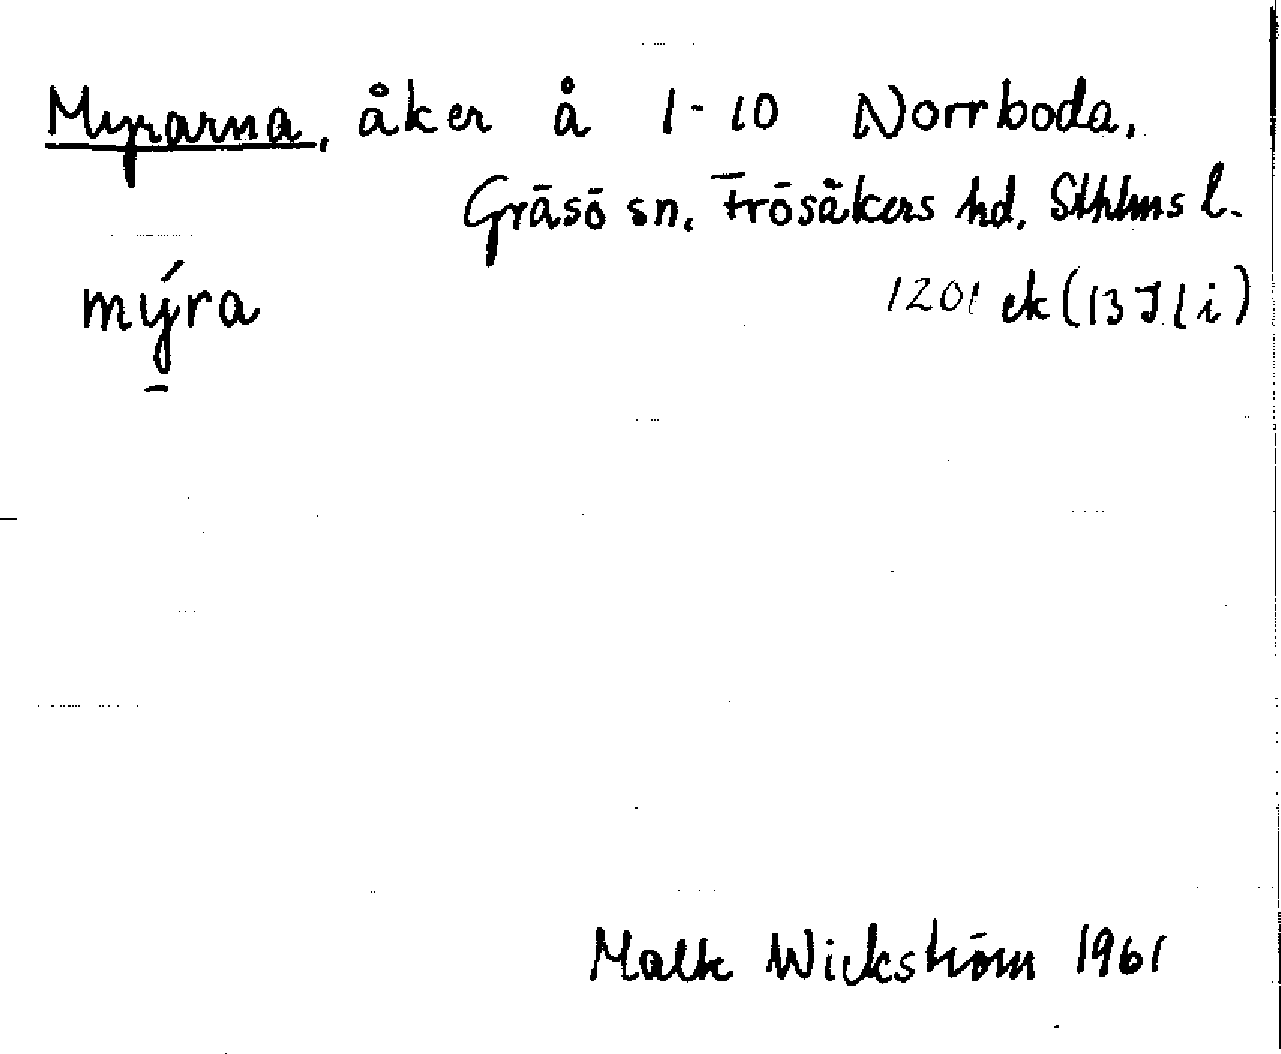 Myrarna, åker å 1-10 Norrboda,
Gräsö sn. Frösåkers hd. Sthlms l.
mýra
1201 ek (13 I 1 i)
Malte Wickström 1961